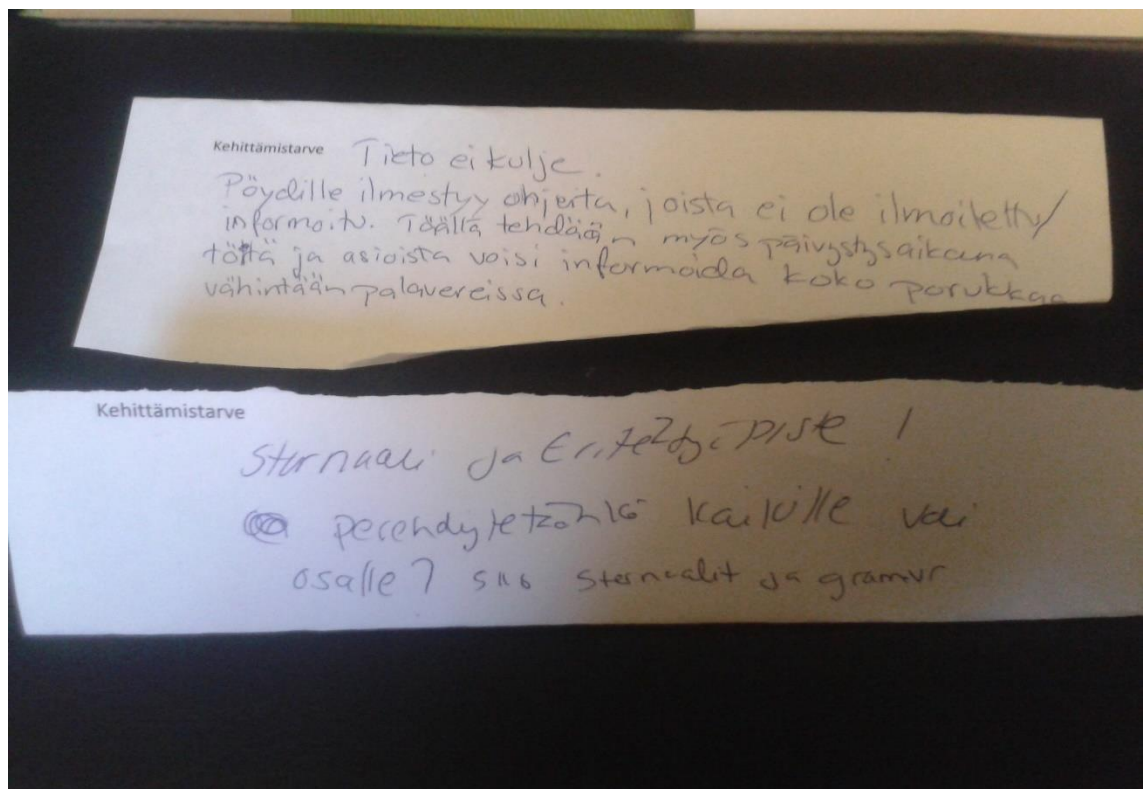 Kehittämistarve Tieto ei kulje.
Pöydille ilmestyy ohjeita, joista ei ole ilmoitettu/
informoitu. Täällä tehdään myös päivystysaikana
töitä ja asioista voisi informoida koko porukkaa
vähintään palavereissa.
Kehittämistarve
Sternaali ja piste
perehdytetäänkö kaikille vai
osalle? sternaalit ja